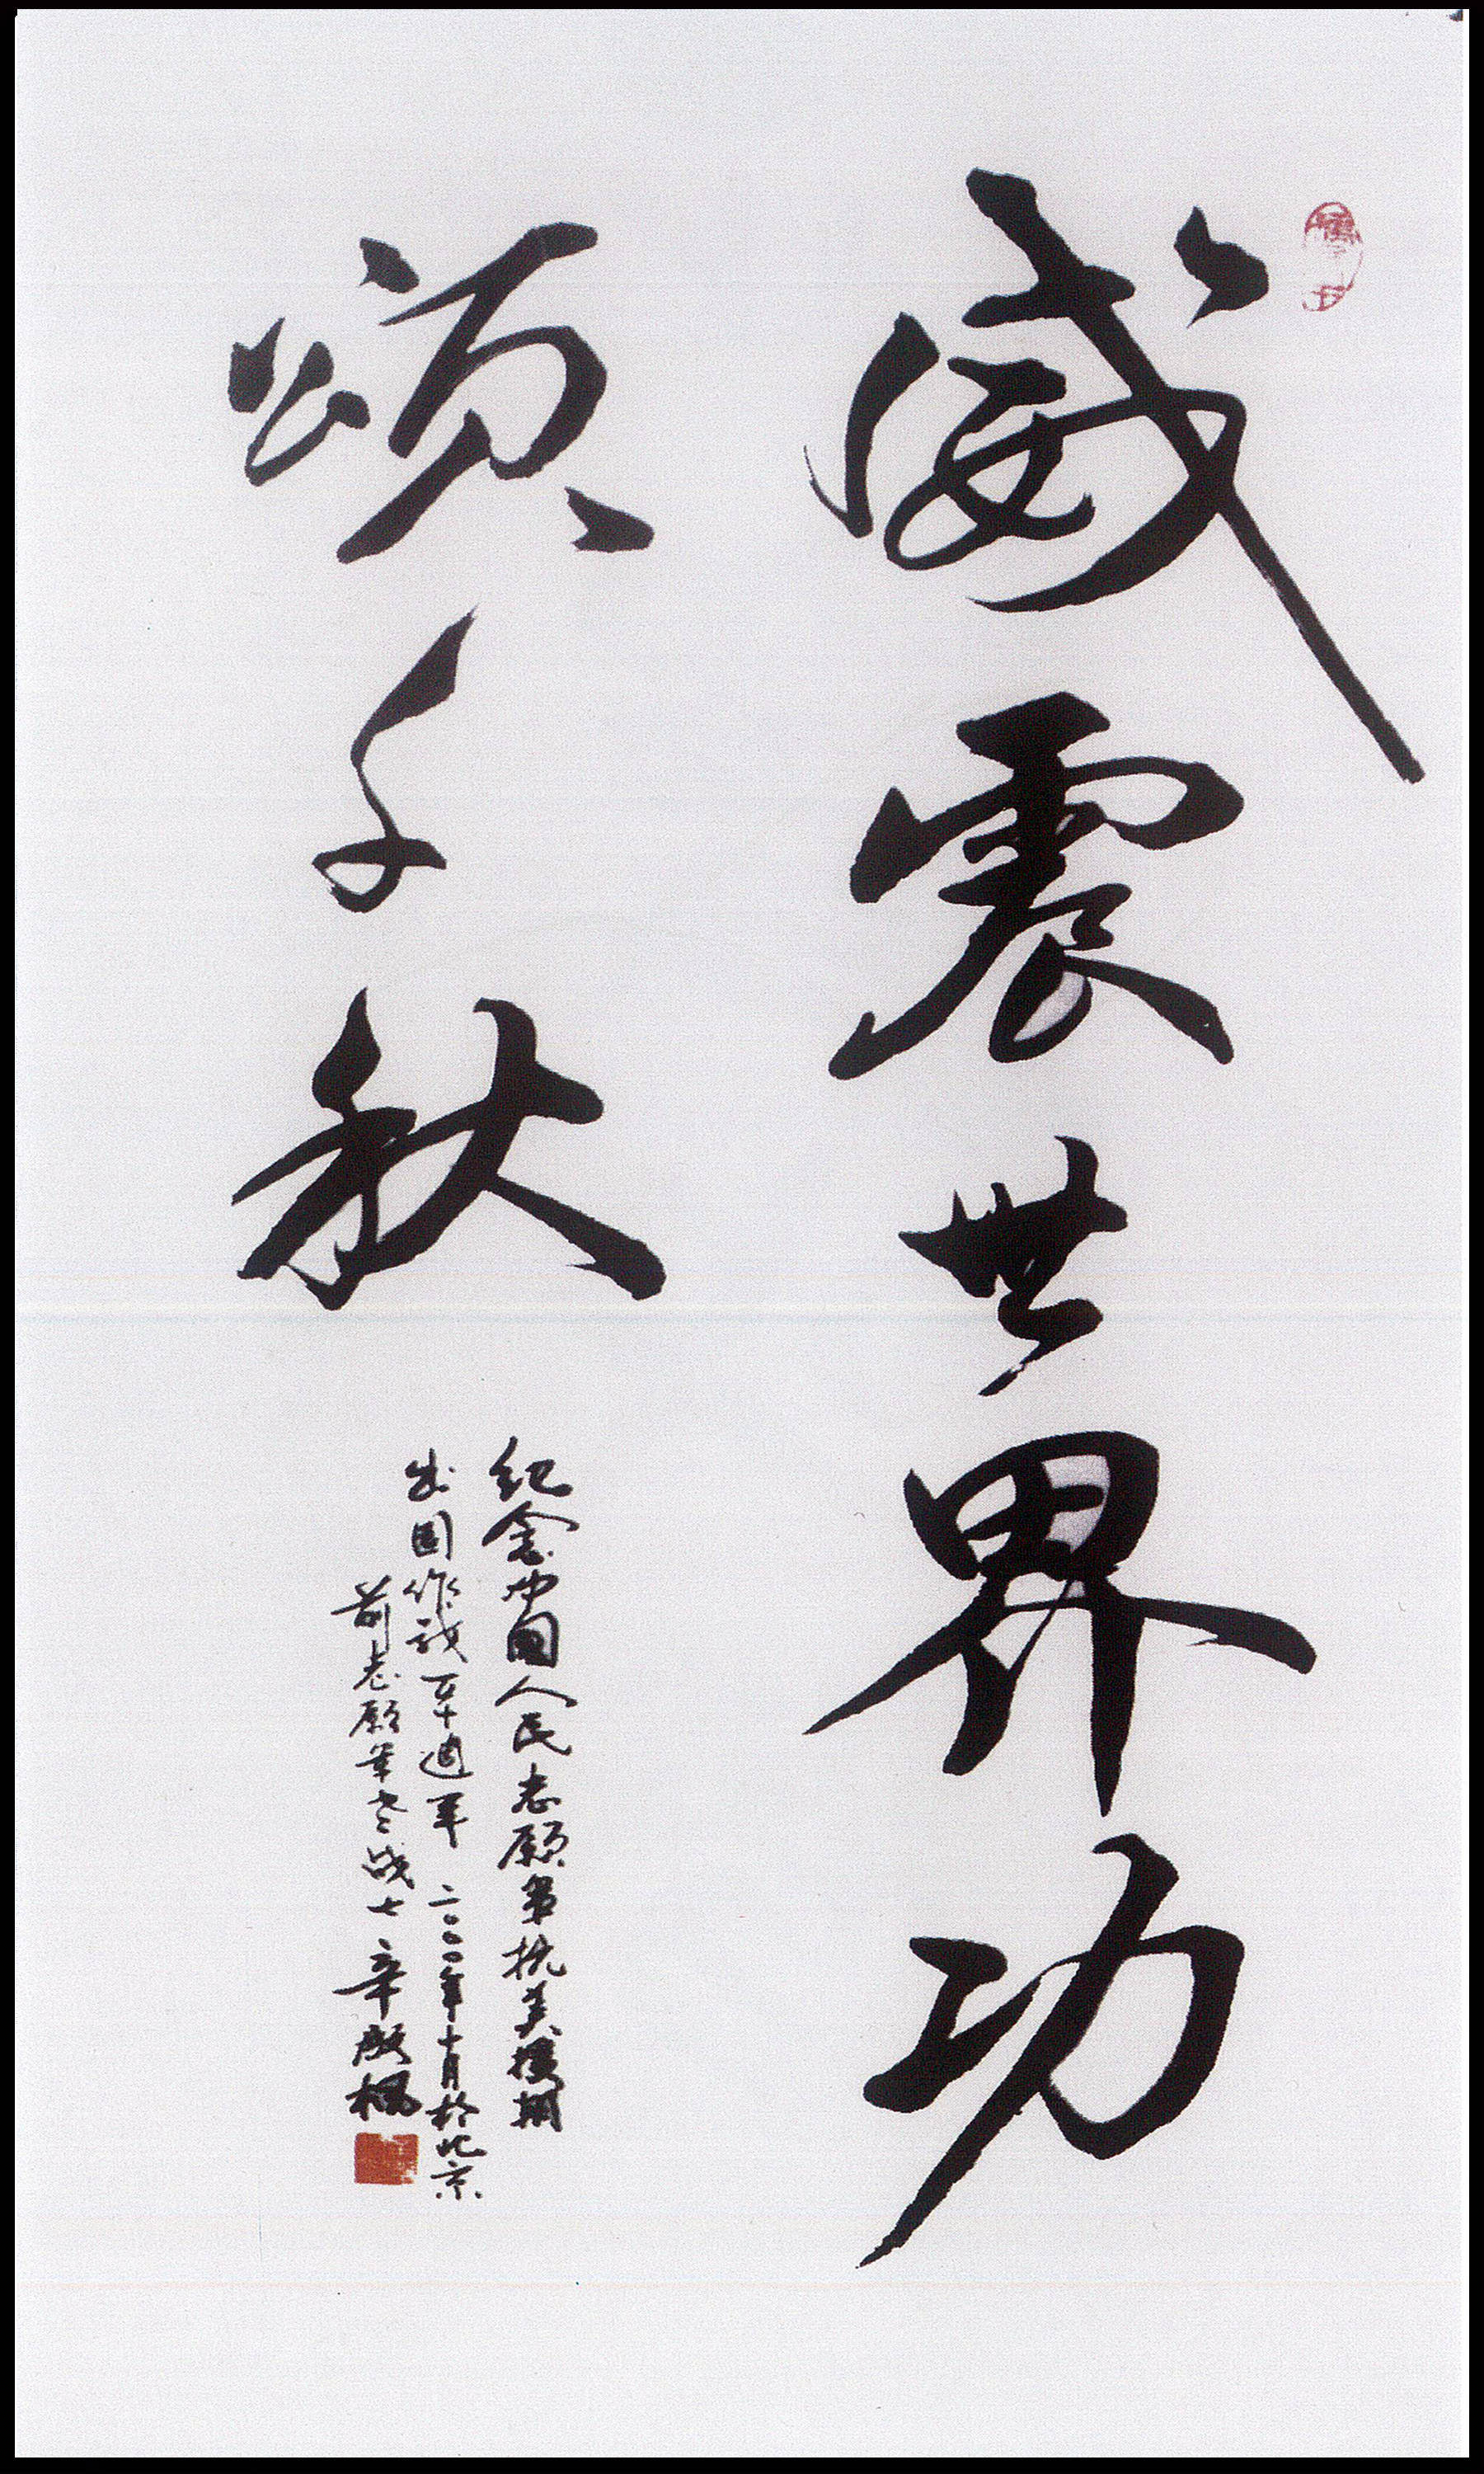 威震世界功
颂千秋
纪念中国人民志愿军抗美援朝
出国作战五十周年 二〇〇〇年十月於北京
前志愿军老战士 辛殿枫